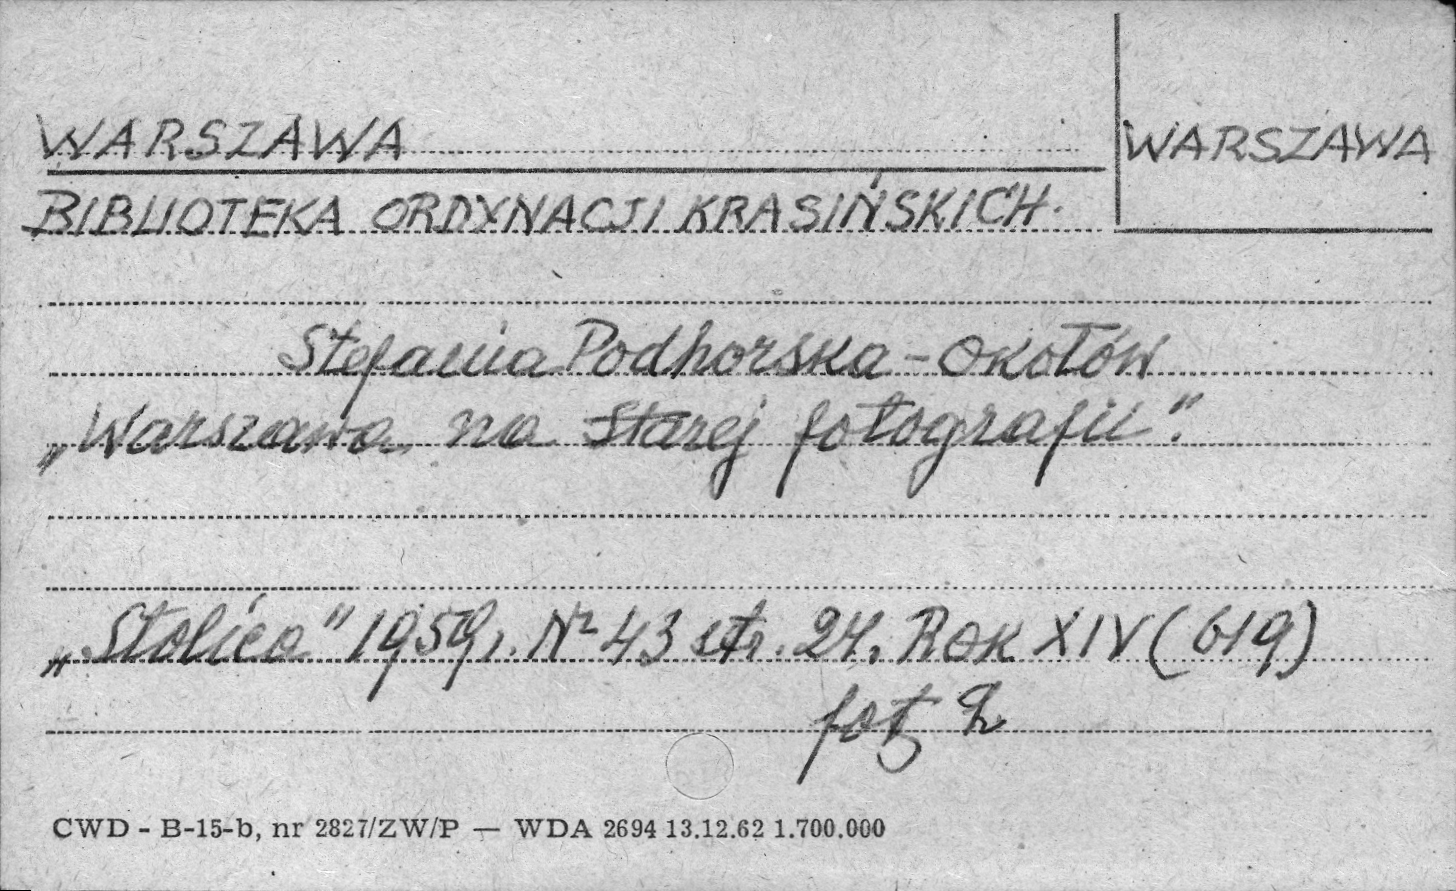 WARSZAWA
WARSZAWA
BIBLIOTEKA ORDYNACJI KRASIŃSKICH.
Stefania Podhorska-Okołów
„Warszawa na starej fotografii".
„Stolica" 1959r. Nr 43 str. 24. Rok XIV (619)
fot. 2
CWD - B-15-b, nr 2827/ZW/P — WDA 2694 13.12.62 1.700.000